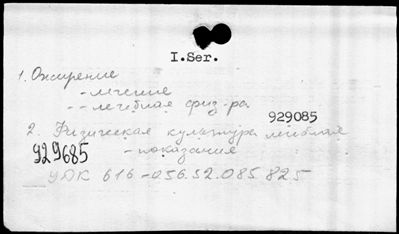 I.Ser.
1. Ожирение
- лечение
-- лечебная физ-ра
929085
2. Физическая культура лечебная
929685
- показания
УДК 616-056.52.085.825